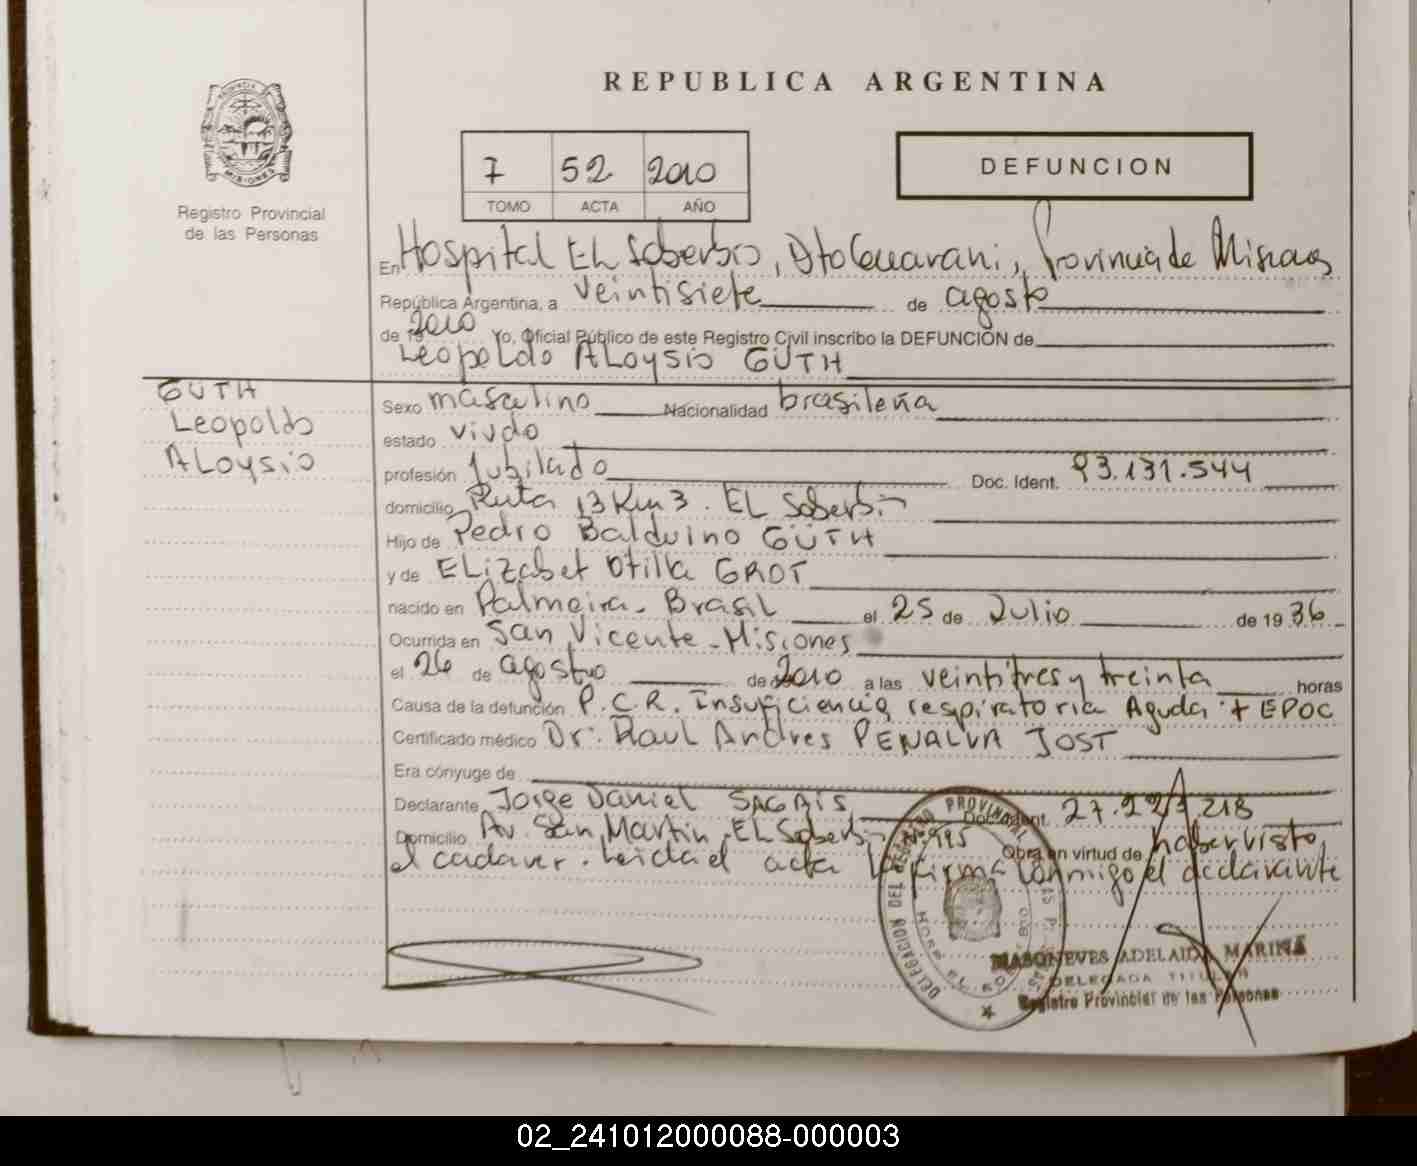 REPUBLICA ARGENTINA
MISIONES
Registro Provincial
de las Personas
7 52 2010
TOMO ACTA AÑO
DEFUNCION
En Hospital EL Soberbio, Dto Guarani, Provincia de Misiones
República Argentina, a veintisiete de agosto
de 19 2010 Yo, Oficial Público de este Registro Civil inscribo la DEFUNCION de
Leopoldo ALoysio GÜTH
GÜTH
Leopoldo
ALoysio
Sexo masculino Nacionalidad brasileña
estado viudo
profesión Jubilado Doc. Ident. 93.131.544
domicilio Ruta 13 Km 3. EL Soberbio
Hijo de Pedro Balduino GÜTH
y de ELizabet Otilia GROT
nacido en Palmeira - Brasil el 25 de Julio de 1936
Ocurrida en San Vicente - Misiones
el 26 de agosto de 2010 a las veintitres y treinta horas
Causa de la defunción P.C.R. Insuficiencia respiratoria Aguda + EPOC
Certificado médico Dr: Raul Andres PENALVA JOST
Era cónyuge de
Declarante Jorge Daniel Doc. Ident. 27.227.218
Domicilio Av. San Martin - EL Soberbio N° 995 Obra en virtud de haber visto
el cadaver. Leida el acta la firma conmigo el declarante
DELEGACION DEL REGISTRO PROVINCIAL
MASONEVES ADELAIDA MARINA
DELEGADA TITULAR
Registro Provincial de las Personas
02_241012000088-000003